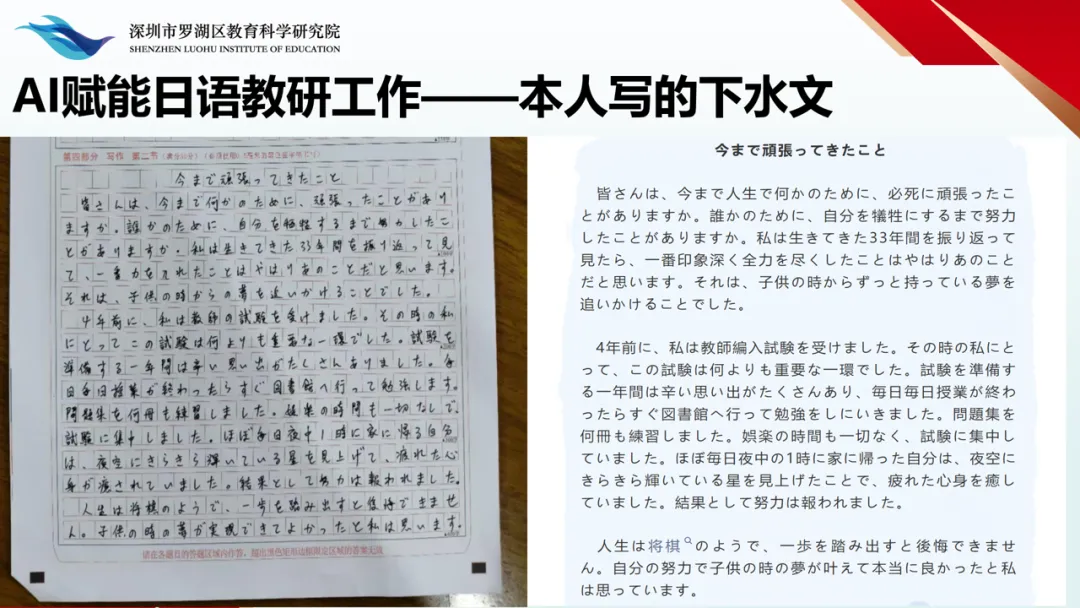 深圳市罗湖区教育科学研究院
SHENZHEN LUOHU INSTITUTE OF EDUCATION
AI赋能日语教研工作——本人写的下水文
第四部分 写作 第二节
今まで頑張ってきたこと
皆さんは、今まで何かのために、頑張ったことがあり
ますか。誰かのために、自分を犠牲するまで努力したこ
とがありますか。私は生きてきた33年間を振り返って見
て、一番力を入れたことはやはりあのことだと思います。
それは、子供の時からの夢を追いかけることでした。
4年前に、私は教師の試験を受けました。その時の私
にとってこの試験は何よりも重要な一環でした。試験を
準備する一年間は辛い思い出がたくさんありました。毎
日毎日授業が終わったらすぐ図書館へ行って勉強します。
問題集を何冊も練習しました。娯楽の時間も一切なしで、
試験に集中しました。ほぼ毎日夜中1時に家に帰る自分
は、夜空にきらきら輝いている星を見上げて、疲れた心
身が癒されていました。結果として努力は報われました。
人生は将棋のようで、一歩を踏み出すと後悔できませ
ん。子供の時の夢が実現できてよかったと私は思います。
请在各题目的答题区域内作答，超出黑色矩形边框限定区域的答案无效
今まで頑張ってきたこと
皆さんは、今まで人生で何かのために、必死に頑張ったこ
とがありますか。誰かのために、自分を犠牲にするまで努力
したことがありますか。私は生きてきた33年間を振り返って
見たら、一番印象深く全力を尽くしたことはやはりあのこと
だと思います。それは、子供の時からずっと持っている夢を
追いかけることでした。
4年前に、私は教師編入試験を受けました。その時の私にと
って、この試験は何よりも重要な一環でした。試験を準備す
る一年間は辛い思い出がたくさんあり、毎日毎日授業が終わ
ったらすぐ図書館へ行って勉強をしにいきました。問題集を
何冊も練習しました。娯楽の時間も一切なく、試験に集中し
ていました。ほぼ毎日夜中の1時に家に帰った自分は、夜空に
きらきら輝いている星を見上げたことで、疲れた心身を癒し
ていました。結果として努力は報われました。
人生は将棋のようで、一歩を踏み出すと後悔できませ
ん。自分の努力で子供の時の夢が叶えて本当に良かったと私
は思っています。